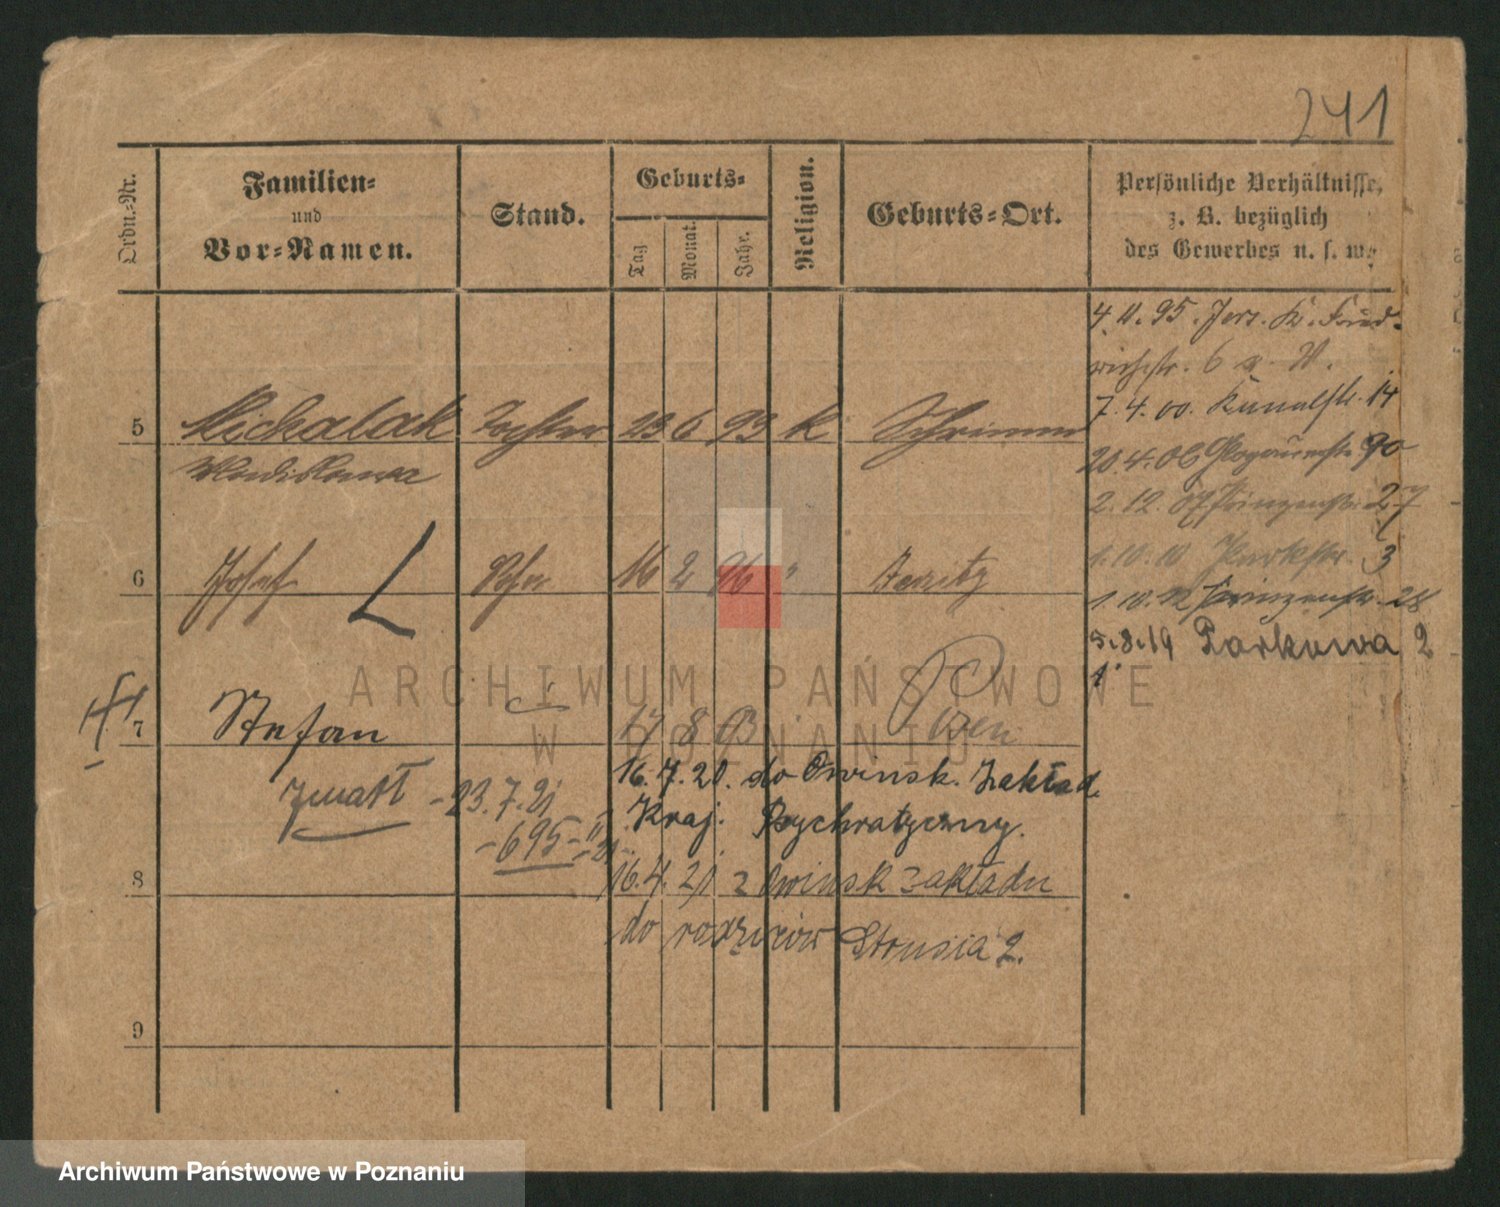 241
Ordn.-Nr.
Familien-
und
Vor-Namen.
Stand.
Geburts-
Tag
Monat.
Jahr.
Religion.
Geburts-Ort.
Persönliche Verhältnisse,
z. B. bezüglich
des Gewerbes u. s. w.
4. 11. 95. Jers. K. Fried-
richstr. 6
5 Michalak Tochter 23 6 93 K Schrimm
7. 4. 00. Kanalstr. 14
Wladislawa
20. 4. 06 Glogauerstr. 90
2. 12. 07 Prinzenstr. 27
6 Josef L Sohn 16 2 96 " Jersitz
1. 10. 10 Parkstr. 3
1. 10. 12 Prinzenstr. 28
5. 8. 19 Parkowa 2
7 Stefan 17 8 03 Posen
16. 7. 20. do Owinsk. Zakład.
zmarł - 23. 7. 21
Kraj. Psychiatryczny.
- 695 - II 21
8
16. 4. 21 z Owinsk zakładu
do rodziców Strusia 2.
9
ARCHIWUM PAŃSTWOWE
W POZNANIU
Archiwum Państwowe w Poznaniu